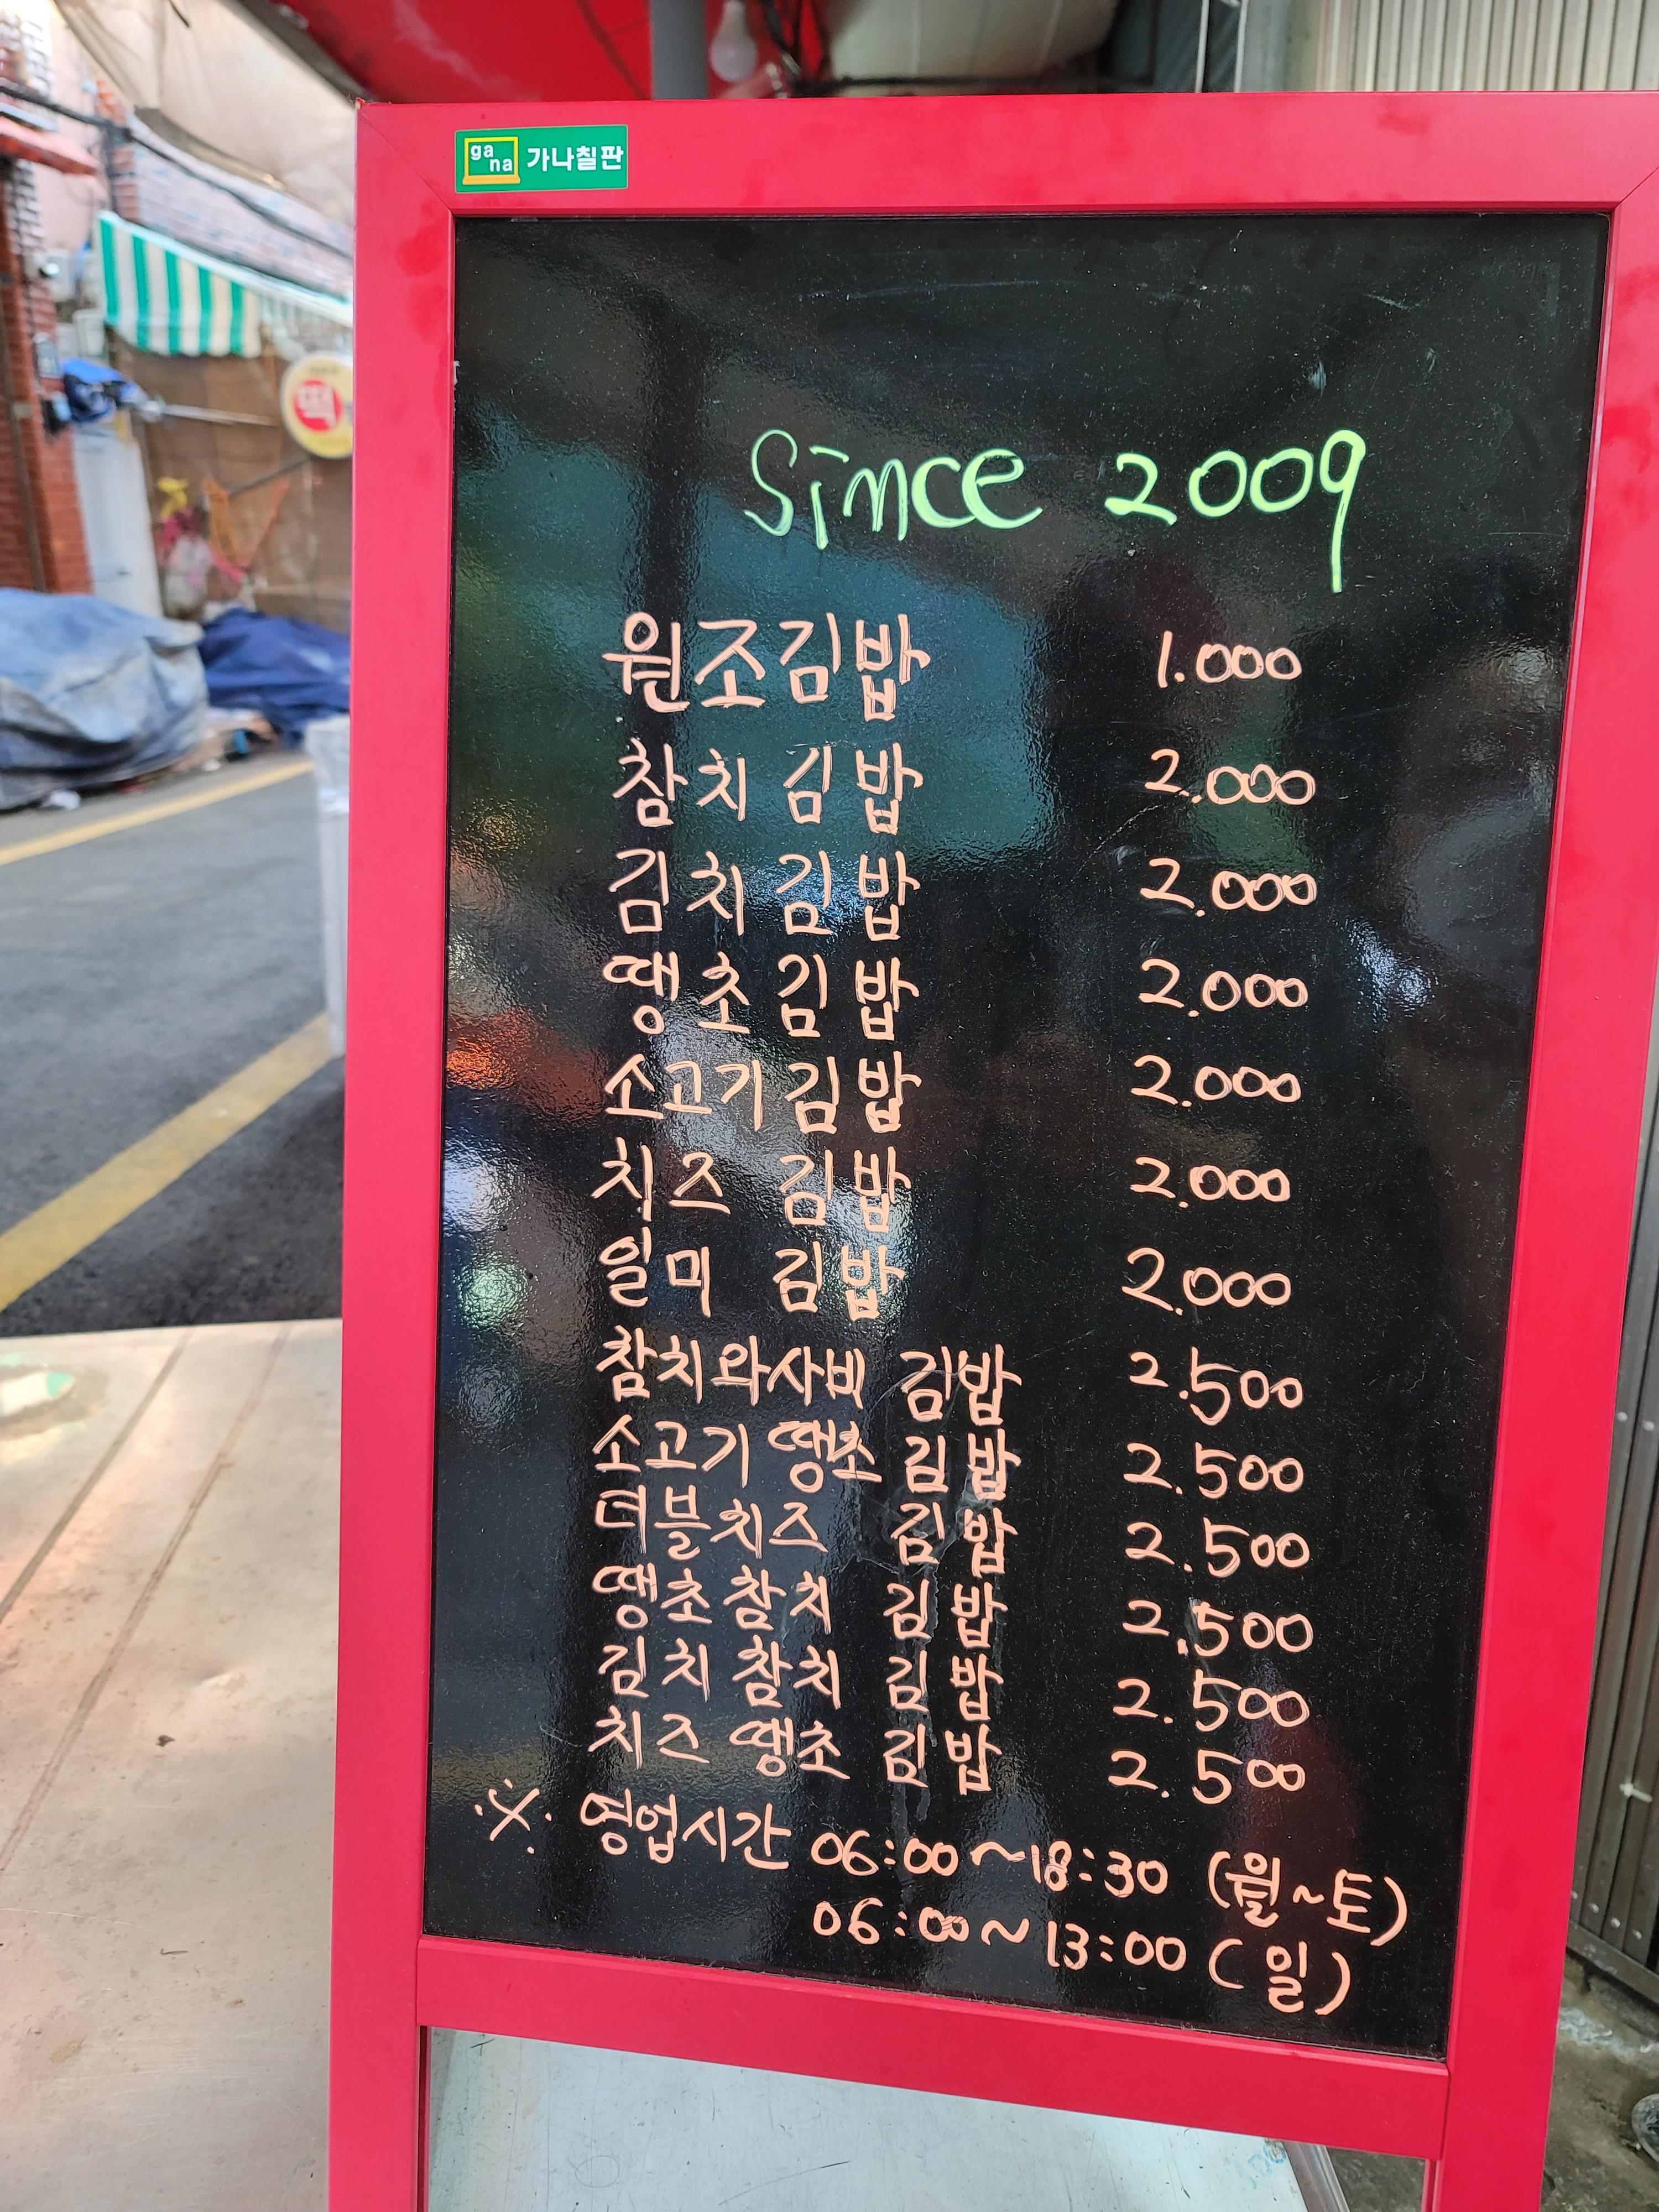 ga na 가나칠판
떡
Since 2009
원조김밥 1.000
참치 김밥 2.000
김치김밥 2.000
땡초김밥 2.000
소고기김밥 2.000
치즈 김밥 2.000
일미 김밥 2.000
참치와사비 김밥 2.500
소고기 땡초 김밥 2.500
더블치즈 김밥 2.500
땡초참치 김밥 2.500
김치참치 김밥 2.500
치즈 땡초 김밥 2.500
※ 영업시간 06:00~18:30 (월~토)
06:00~13:00 (일)